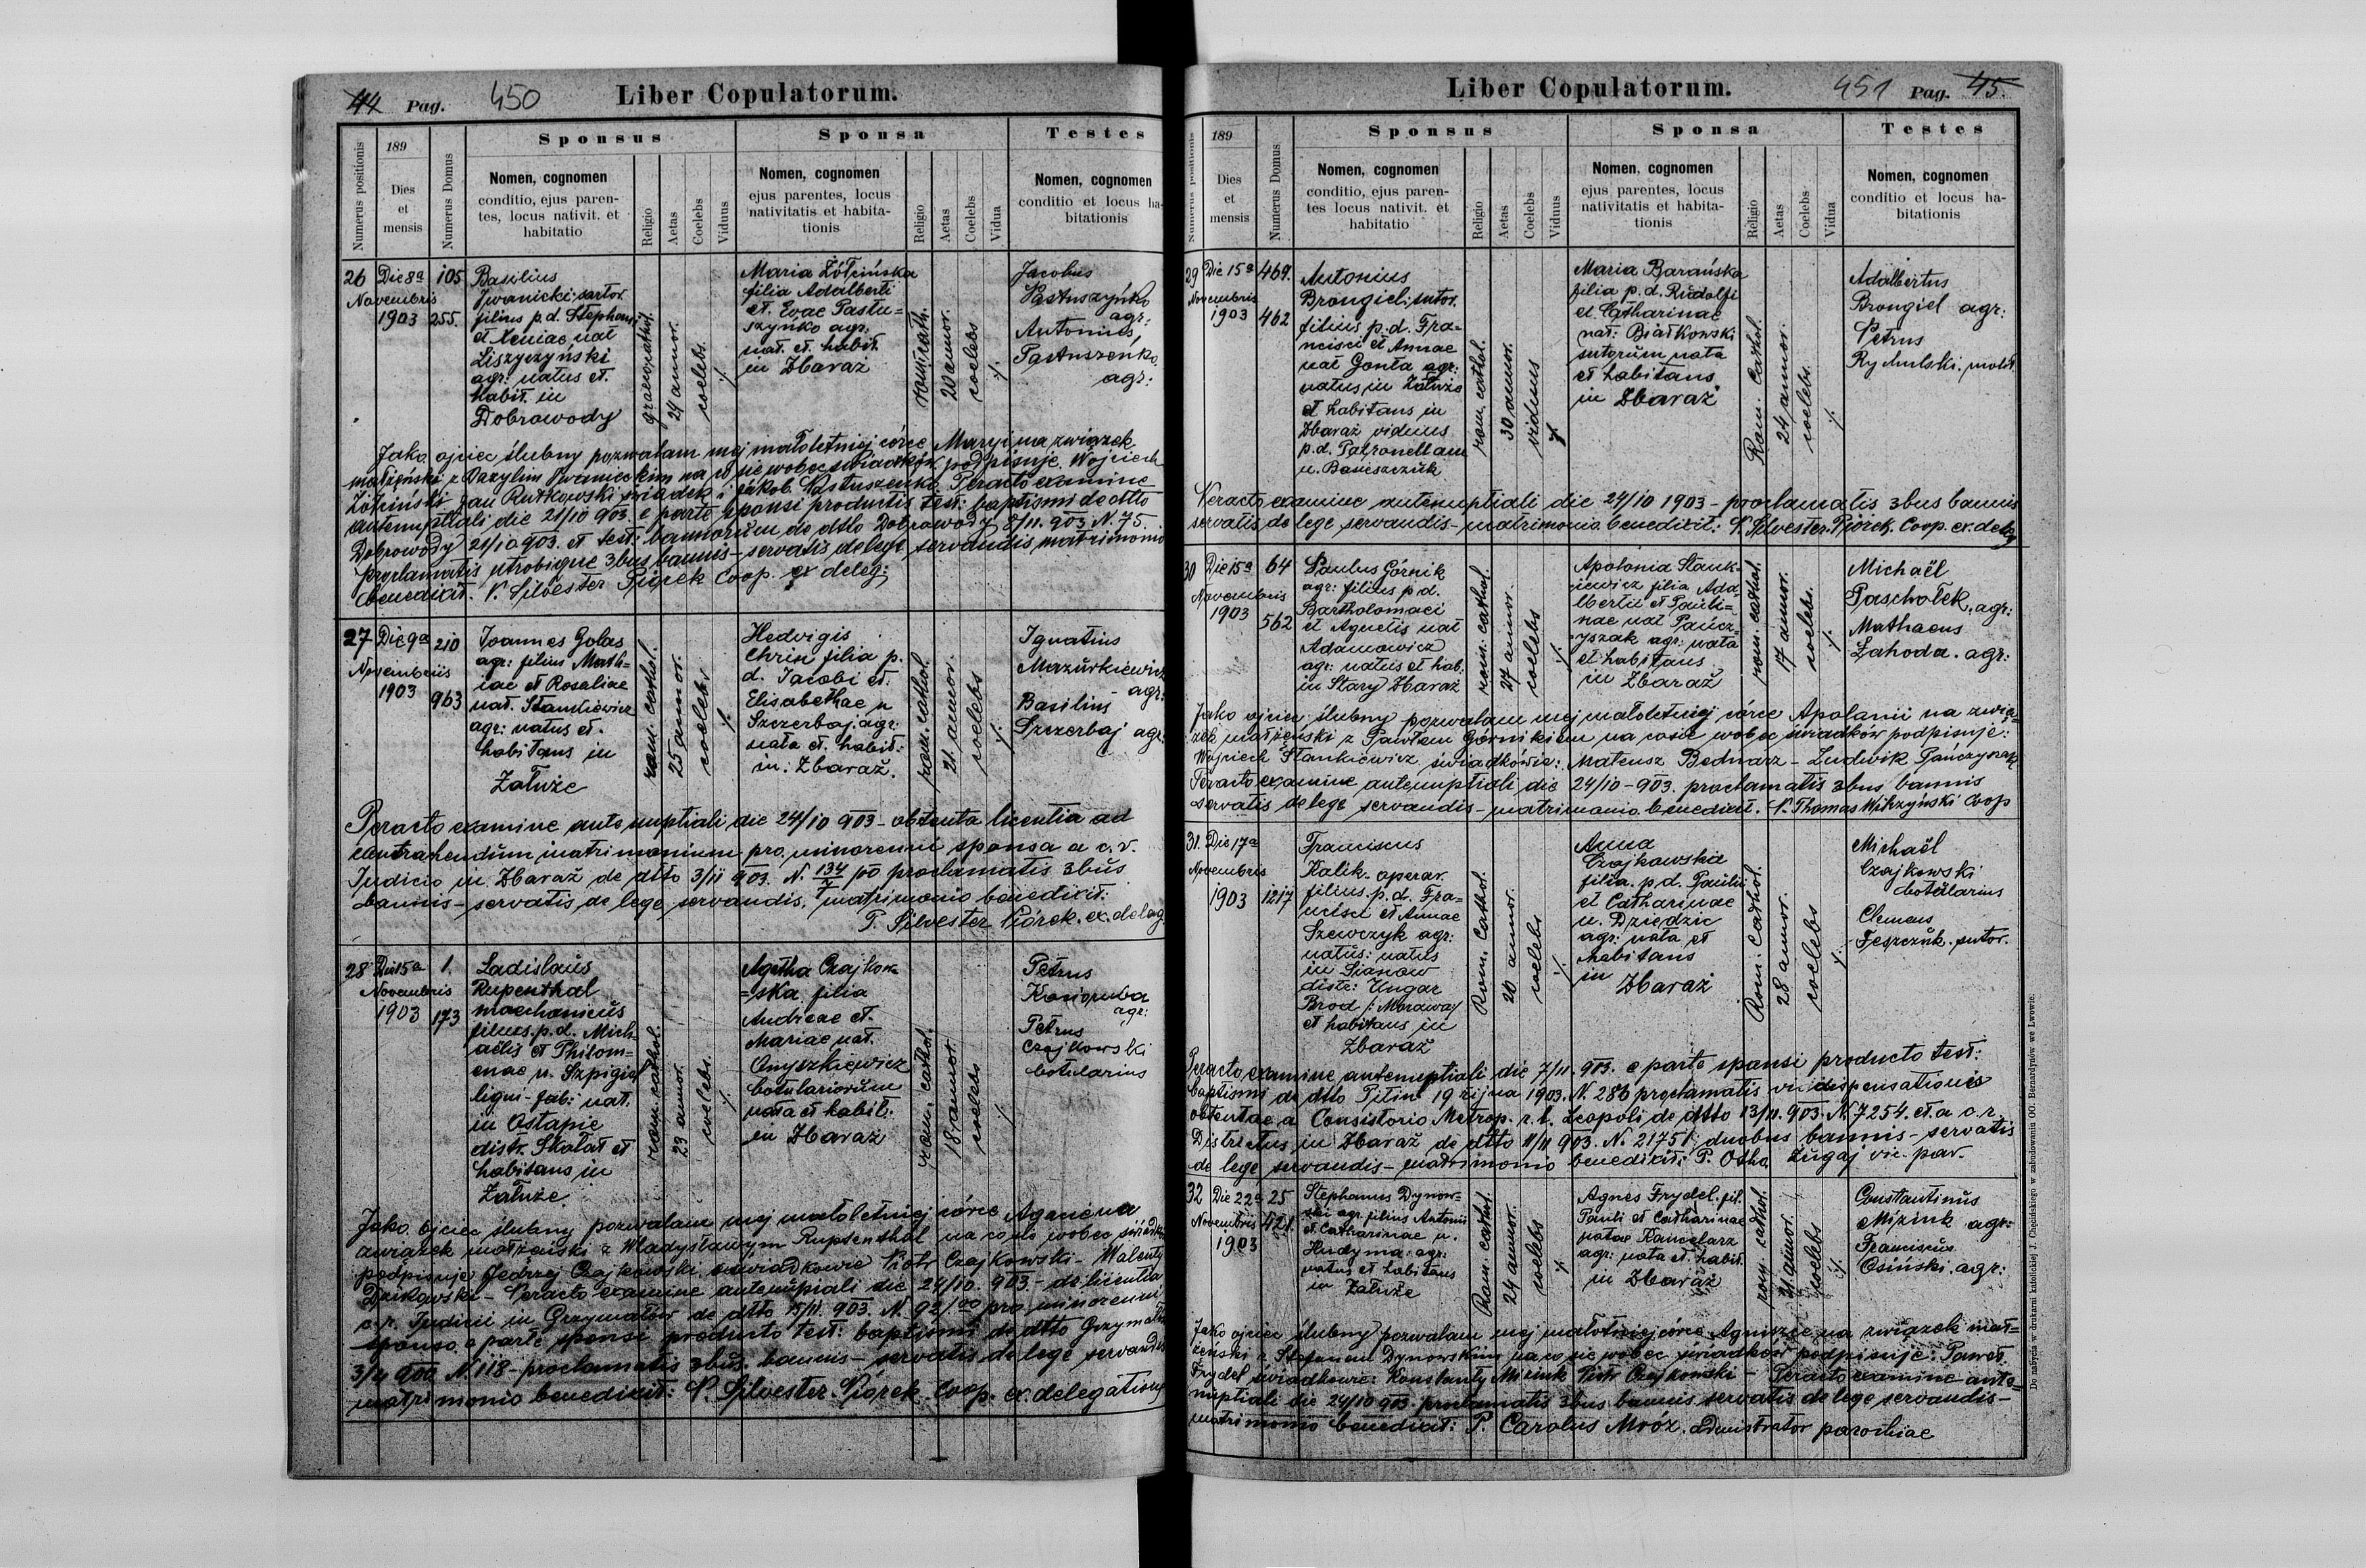 44 Pag. 450 Liber Copulatorum.
Numerus positionis
189
Dies
et
mensis
Numerus Domus
Sponsus
Nomen, cognomen
conditio, ejus paren-
tes, locus nativit. et
habitatio
Religio
Aetas
Coelebs
Viduus
Sponsa
Nomen, cognomen
ejus parentes, locus
nativitatis et habita-
tionis
Religio
Aetas
Coelebs
Vidua
Testes
Nomen, cognomen
conditio et locus ha-
bitationis
26 Die 8a Novembris 1903
105
255.
Basilius
Iwanicki sartor
filius p.d. Stephani
et Xeniae nat
Liszyczyński
agr: natus et
habit. in
Dobrowody
graeco cathol.
24 annor.
coelebs.
Maria Żółcińska
filia Adalberti
et Evae Pastu=
szyńko agr:
nat. et. habit.
in Zbaraż
rom. cath.
20 annor.
coelebs
Jacobus
Pastuszyńko
agr:
Antonius
Pastuszeńko
agr:
Jako ojciec ślubny pozwalam mej małoletniej córce Maryi na związek
małżeński z Bazylim Iwanickim na co się wobec świadków podpisuję. Wojciech
Żółciński Jan Rutkowski świadek i Jakób Pastuszenko. Peracto examine
antenuptiali die 21/10 903. e parte sponsi productis test: baptismi de dtto
Dobrowody 21/10 903. et test: bannorum de dtto Dobrowody 8/11. 903 N. 75.
proclamatis utrobique 3bus bannis – servatis de lege servandis matrimonio
benedixit. P. Silvester Piórek Coop. ex deleg:
27 Die 9a Novembris 1903
210
963
Joannes Golas
agr: filius Math=
iae et Rosaliae
nat. Stankiewicz
agr: natus et.
habitans in
Załuże
rom. cathol.
25 annor.
coelebs
Hedvigis
Chrin filia p.
d. Jacobi et.
Elisabethae n
Szczerbaj agr:
nata et. habit:
in: Zbaraż.
rom. cathol.
21. annor.
coelebs
Ignatius
Mazurkiewicz
agr:
Basilius
Szczerbaj agr:
Peracto examine antenuptiali die 24/10 903 – obtenta licentia ad
contrahendum matrimonium pro minorenni sponsa a c. r.
Iudicio in Zbaraż de dtto 3/11 903. N. 134/7 /00 proclamatis 3bus
bannis – servatis de lege servandis, matrimonio benedixit.
P. Silvester Piórek. ex. deleg
28 Die 15a Novembris 1903
1.
173
Ladislaus
Rupenthal
maechanicus
filius. p. d. Mich-
aelis et Philom=
enae n. Szpigiel
ligni - fab: nat.
in Ostapie
distr. Skałat et
habitans in
Załuże
rom. cathol.
23 annor.
coelebs.
Agatha Czajkow
=ska filia
Andreae et.
Mariae nat.
Onyszkiewicz
botulariorum
nata et habit:
in Zbaraż
rom. cathol.
18 annor.
coelebs
Petrus
agr:
Petrus
Czajkowski
botularius
Jako ojciec ślubny pozwalam mej małoletniej córce Agacie na
związek małżeński z Władysławym Rupenthal na co się wobec świadków
podpisuję Jędrzej Czajkowski, świadkowie Piotr Czajkowski – Walenty
Peracto examine antenuptiali die 24/10. 903. – de licentia
c. r. Iudicii in Grzymałów de dtto 15/11. 903. N. 92/00 pro minorenni
sponso. e parte sponsi producto test: baptismi de dtto Grzymałów
N. 118 – proclamatis 3bus. bannis – servatis de lege servandis
matrimonio benedixit: P. Silvester Piórek. Coop. ex. delegatione
Liber Copulatorum. 451 Pag. 45.
Numerus positionis
189
Dies
et
mensis
Numerus Domus
Sponsus
Nomen, cognomen
conditio, ejus paren-
tes locus nativit. et
habitatio
Religio
Aetas
Coelebs
Viduus
Sponsa
Nomen, cognomen
ejus parentes, locus
nativitatis et habita-
tionis
Religio
Aetas
Coelebs
Vidua
Testes
Nomen, cognomen
conditio et locus ha-
bitationis
29 Die 15a Novembris 1903
469.
462
Antonius
Brongiel. sutor.
filius p. d. Fra=
ncisci et Annae
nat Gonta agr:
natus in Załuże
et habitans in
Zbaraż viduus
p. d. Patronellam
rom. cathol.
30 annor.
viduus
Maria Barańska
filia p. d. Rudolfi
et Catharinae
nat: Białkowski
sutorum nata
et habitans
in Zbaraż
Rom. Cathol.
24 annor.
coelebs.
Adalbertus
Brongiel agr:
Petrus
Peracto examine antenuptiali die 24/10 1903 – proclamatis 3bus bannis
servatis de lege servandis – matrimonio benedixit: P. Silvester Piórek. Coop. ex. deleg
30 Die 15a Novembris 1903
64
562
Paulus Górnik
agr: filius p. d.
Bartholomaei
et Agnetis nat
Adamowicz
agr: natus et hab.
in Stary Zbaraż
rom. cathol.
27 annor.
coelebs
Apolonia Stank-
iewicz filia Ada
lberti et Pauli=
nae nat Pańcz-
yszak agr: nata
et habitans
in Zbaraż
rom. cathol
17 annor.
coelebs.
Michaël
Paschołek. agr:
Mathaeus
Lahoda. agr:
Jako ojciec ślubny pozwalam mej małoletniej córce Apolonii na zwią=
zek małżeński z Pawłem Górnikiem na co się wobec świadków podpisuję:
Wojciech Stankiewicz, świadkowie: Mateusz Bednarz – Ludwik Pańczyszak
Peracto examine antenuptiali die 24/10 – 903. proclamatis 3bus bannis
servatis de lege servandis – matrimonio benedixit. P. Thomas Coop
31. Die 17a Novembris 1903
1217
Franciscus
Kalik. operar.
filius. p. d. Fra=
ncisci et Annae
Szewczyk agr:
natus: natus
in
distr: Ungar
Brod /: Morawa/
et habitans in
Zbaraż
Rom. Cathol.
20 annor.
coelebs
Anna
Czajkowska
filia. p. d. Paulii
et Catharinae
n. Dziedzic
agr: nata et
habitans
in Zbaraż
Rom. Cathol.
28 annor.
coelebs
Michaël
Czajkowski
botularius
Clemens
sutor.
Peracto examine antenuptiali die 7/11. 903. e parte sponsi producto test:
baptismi de dtto 1903. N. 286 proclamatis vi dispensationis
obtentae a Consistorio Metrop. r. l. Leopoli de dtto 13/11. 903. N 7254. et. a c. r.
Districtus in Zbaraż de dtto 11/11 903. N. 21751, duobus bannis – servatis
de lege servandis – matrimonio benedixit: P. Otho Zugaj vic. par.
32 Die 22a Novembris 1903
25
421.
Stephanus Dynow=
ski agr. filius Antonii
et Catharinae n.
Hudyma: agr:
natus et habitans
in Załuże
Rom. cathol.
24 annor.
coelebs
Agnes Frydel. fil.
Pauli et Catharinae
natae Kancelarz
agr: nata et. habit.
in Zbaraż
rom. cathol.
21. annor.
coelebs
Constantinus
Mizink agr:
Franciscus
Osiński. agr:
Jako ojciec ślubny pozwalam mej małoletniej córce Agnieszce na związek mał=
żeński z Stefanem Dynowskim na co się wobec świadków podpisuję: Paweł
Frydel świadkowie: Konstanty Mizink Piotr Czajkowski – Peracto examine ante=
nuptiali die 24/10 903. proclamatis 3bus bannis servatis de lege servandis –
matrimonio benedixit: P. Carolus Mróz. administrator parochiae
Do nabycia w drukarni katolickiej J. Chęcińskiego w zabudowaniu OO. Bernardynów we Lwowie.